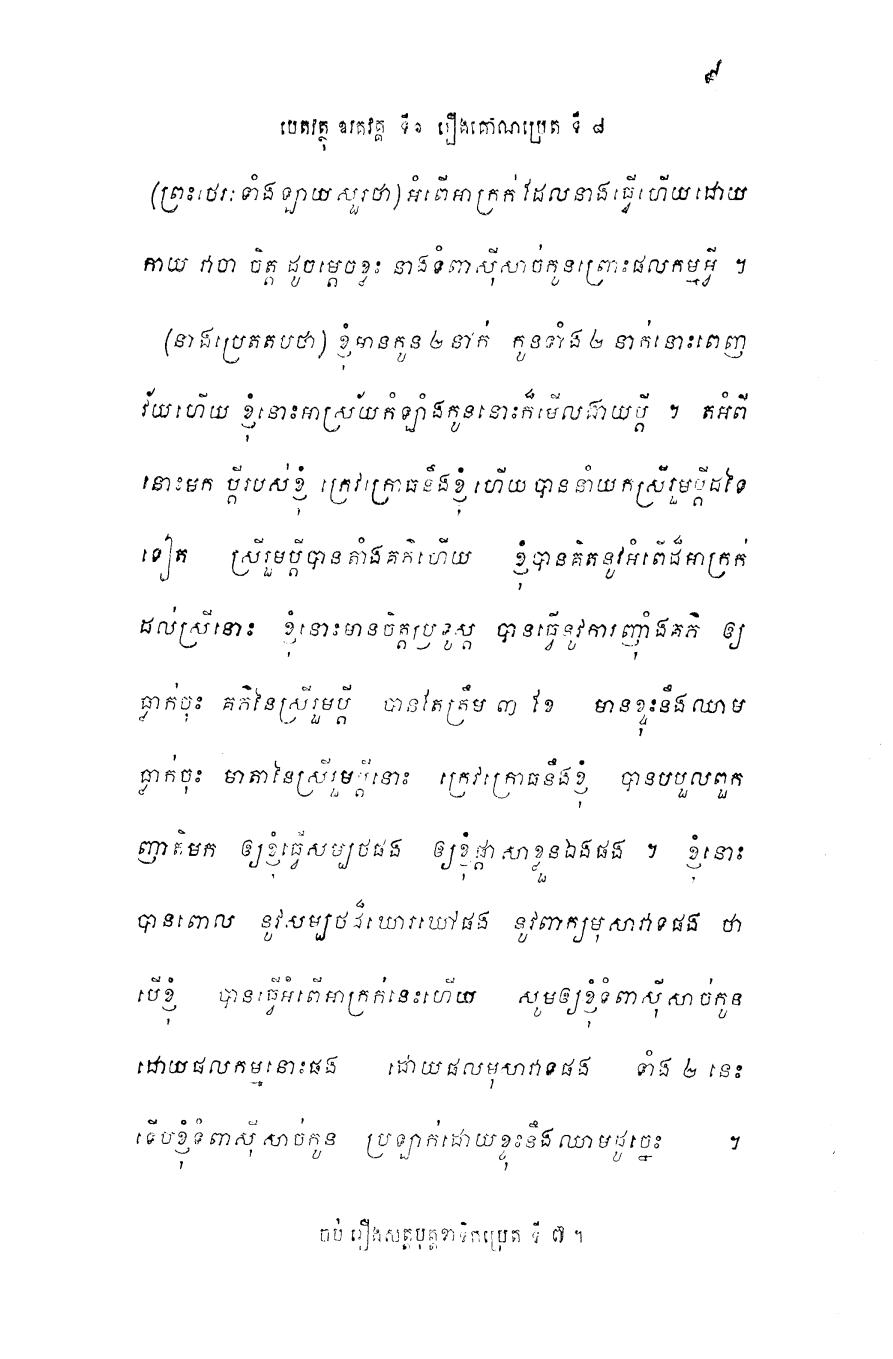 ៩
បេតវត្ថុ ឧរគវគ្គ ទី១ រឿងគោណប្រេត ទី ៨
(ព្រះថេរៈទាំងឡាយសួរថា) អំពើអាក្រក់ដែលនាងធ្វើហើយដោយ
កាយ វាចា ចិត្ត ដូចម្ដេចខ្លះ នាងទំពាស៊ីសាច់កូនព្រោះផលកម្មអ្វី ។
(នាងប្រេតតបថា) ខ្ញុំមានកូន ២ នាក់ កូនទាំង ២ នាក់នោះពេញ
វ័យហើយ ខ្ញុំនោះអាស្រ័យកំឡាំងកូននោះក៏មើលងាយប្ដី ។ តអំពី
នោះមក ប្ដីរបស់ខ្ញុំ ក្រេវក្រោធនឹងខ្ញុំហើយ បាននាំយកស្រីរួមប្ដីដទៃ
ទៀត ស្រីរួមប្ដីបានតាំងគភ៌ហើយ ខ្ញុំបានគិតនូវអំពើដ៏អាក្រក់
ដល់ស្រីនោះ ខ្ញុំនោះមានចិត្តប្រទូស្ត បានធ្វើនូវការញ៉ាំងគភ៌ ឲ្យ
ធ្លាក់ចុះ គភ៌នៃស្រីរួមប្ដី បានតែត្រឹម ៣ ខែ មានខ្ទុះនឹងឈាម
ធ្លាក់ចុះ មាតានៃស្រីរួមប្ដីនោះ ក្រេវក្រោធនឹងខ្ញុំ បានបបួលពួក
ញាតិមក ឲ្យខ្ញុំធ្វើសម្បថផង ឲ្យខ្ញុំផ្ដាសាខ្លួនឯងផង ។ ខ្ញុំនោះ
បានពោល នូវសម្បថដ៏ឃោរឃៅផង នូវពាក្យមុសាវាទផង ថា
បើខ្ញុំ បានធ្វើអំពើអាក្រក់នេះហើយ សូមឲ្យខ្ញុំទំពាស៊ីសាច់កូន
ដោយផលកម្មនោះផង ដោយផលមុសាវាទផង ទាំង ២ នេះ
ទើបខ្ញុំទំពាស៊ីសាច់កូន ប្រឡាក់ដោយខ្ទុះនឹងឈាមដូច្នេះ ។
ចប់ រឿងសត្តបុត្តខាទិកប្រេត ទី ៧ ។